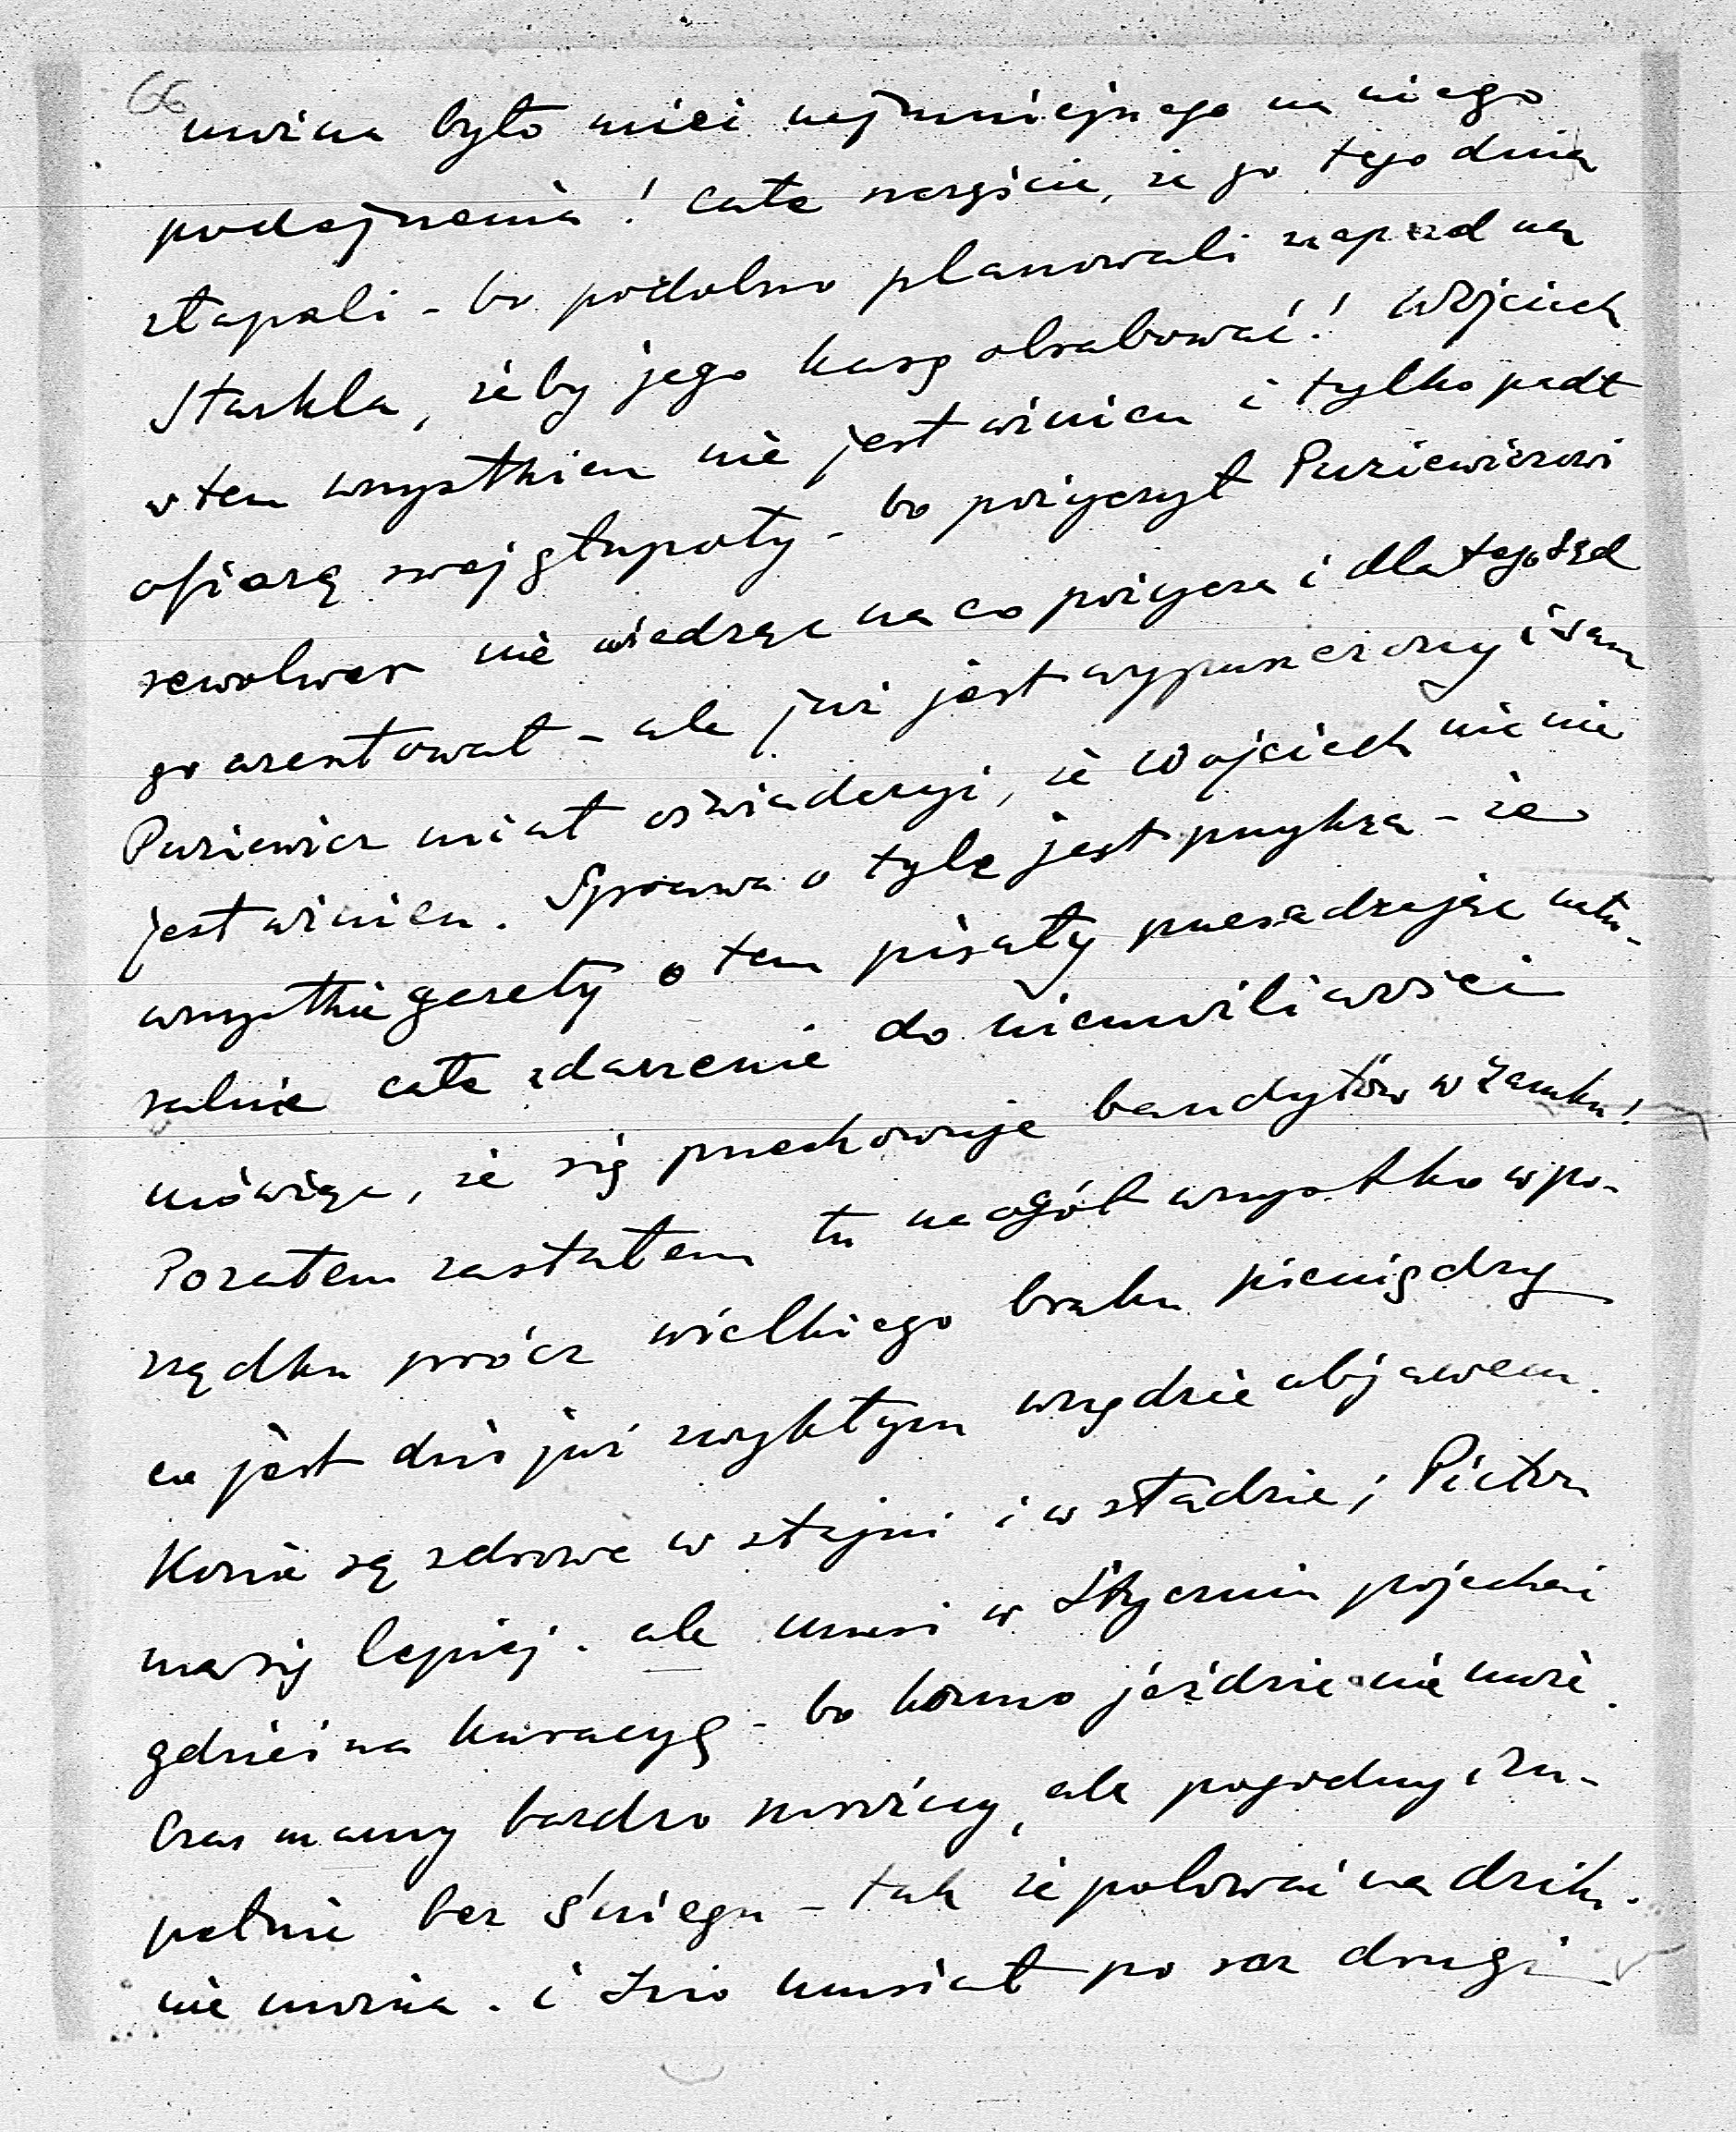 66
można było mieć najmniejszego na niego
podejrzenia! Całe szczęście, że go tego dnia
złapali - bo podobno planowali napad na
Starkla, żeby jego kasę obrabować! Wojciech
w tem wszystkiem nie jest winien i tylko padł
ofiarą swej głupoty - bo pożyczył Puziewiczowi
rewolwer nie wiedząc na co pożycza i dla tego sąd
go aresztował - ale już jest wypuszczony i sam
Puziewicz miał oświadczyć, że Wojciech nic nie
jest winien. Sprawa o tyle jest przykra - że
wszystkie gazety o tem pisały przesadzając natu-
ralnie całe zdarzenie do niemożliwości
mówiąc, że się przechowuje bandytów w Zamku!
Pozatem zastałem tu naogół wszystko w po-
rządku prócz wielkiego braku pieniędzy
co jest dziś już zwykłym wszędzie objawem.
Konie są zdrowe w stajni i w stadzie; Piotr
ma się lepiej - ale musi w Styczniu pojechać
gdzieś na kuracyę - bo konno jeździć nie może.
Czas mamy bardzo mroźny, ale pogodny i zu-
pełnie bez śniegu - tak że polować na dziki
nie można - i Izio musiał po raz drugi